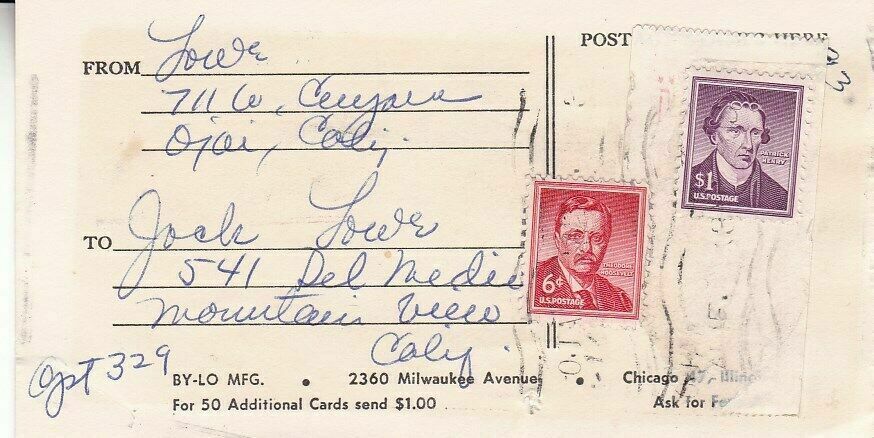 POST
FROM Lowe
711 W. Cuyama
Ojai, Calif.
TO Jack Lowe
541 Del Medio
Mountain View
Calif.
Apt 329
PATRICK HENRY
$1
U.S. POSTAGE
THEODORE ROOSEVELT
6¢
U.S. POSTAGE
BY-LO MFG. • 2360 Milwaukee Avenue • Chicago 47, Illinois
For 50 Additional Cards send $1.00 Ask for